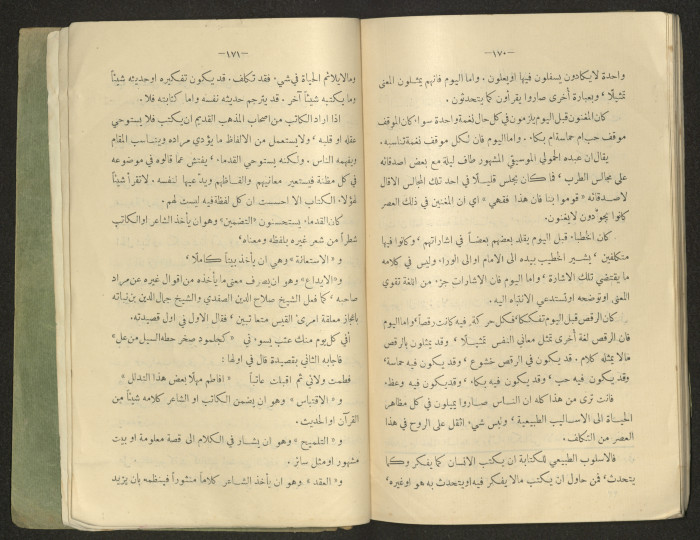 —١٧٠—
واحدة لايكادون يسفلون فيها او يعلون . واما اليوم فانهم يمثلون المغنى
تمثيلًا ‘ وبعبارة أخرى صاروا يقرأون كما يتحدثون .
كان المغنون قبل اليوم يلزمون في كل حال نغمة واحدة سواء كان الموقف
موقف حب ام حماسة ام بكاء . واما اليوم فان لكل موقف نغمة تناسبه .
يقال ان عبده الحمولي الموسيقي المشهور طاف ليلة مع بعض اصدقائه
على مجالس الطرب ‘ فما كان يجلس قليلًا في احد تلك المجالس الا قال
لاصدقائه « قوموا بنا فان هذا فقهي » اي ان المغنين في ذلك العصر
كانوا يجوّدون لا يغنون .
كان الخطباء قبل اليوم يقلد بعضهم بعضاً في اشاراتهم ‘ وكانوا فيها
متكلفين ‘ يشير الخطيب بيده الى الامام او الى الوراء وليس في كلامه
ما يقتضي تلك الاشارة ‘ واما اليوم فان الاشارات جزء من اللغة تقوي
المعنى او توضحه او تستدعي الانتباه اليه .
كان الرقص قبل اليوم تفككاً ‘ فكل حركة فيه كانت رقصاً ‘ واما اليوم
فان الرقص لغة أخرى تمثل معاني النفس تمثيلًا ‘ وقد يمثلون بالرقص
مالا يمثله كلام . قد يكون في الرقص خشوع ‘ وقد يكون فيه حماسة ‘
وقد يكون فيه حب ‘ وقد يكون فيه بكاء ‘ وقد يكون فيه وعظ .
فانت ترى من هذا كله ان الناس صاروا يميلون في كل مظاهر
الحياة الى الاساليب الطبيعية ‘ وليس شيء اثقل على الروح في هذا
العصر من التكلف .
فالاسلوب الطبيعي للكتابة ان يكتب الانسان كما يفكر وكما
يتحدث ‘ فمن حاول ان يكتب مالا يفكر فيه او يتحدث به هو او غيره ‘
—١٧١—
وما لا يلائم الحياة في شيء فقد تكلف . قد يكون تفكيره او حديثه شيئاً
وما يكتبه شيئاً آخر . قد يترجم حديثه نفسه واما كتابته فلا .
اذا اراد الكاتب من اصحاب المذهب القديم ان يكتب فلا يستوحي
عقله او قلبه ‘ ولا يستعمل من الالفاظ ما يؤدي مراده ويناسب المقام
ويفهمه الناس . ولكنه يستوحي القدماء ‘ يفتش عما قالوه في موضوعه
في كل مظنة فيستعير معانيهم والفاظهم ويدّعيها لنفسه . لا تقرأ شيئاً
لهؤلاء الكتاب الا احسست ان كل لفظة فيه ليست لهم .
كان القدماء يستحسنون «التضمين» وهو ان يأخذ الشاعر او الكاتب
شطراً من شعر غيره بلفظه ومعناه ‘
و « الاستعانة » وهي ان يأخذ بيتاً كاملًا ‘
و «الايداع» وهو ان يصرف معنى ما يأخذه من اقوال غيره عن مراد
صاحبه ‘ كما فعل الشيخ صلاح الدين الصفدي والشيخ جمال الدين بن نباته
باعجاز معلقة امرىء القيس متعاتبين ‘ فقال الاول في اول قصيدته .
أفي كل يوم منك عتب يسوءني « كجلمود صخر حطه السيل من عل »
فاجابه الثاني بقصيدة قال في اولها :
فطمت ولائي ثم اقبلت عاتباً « افاطم مهلًا بعض هذا التدلل »
و « الاقتباس » وهو ان يضمن الكاتب او الشاعر كلامه شيئاً من
القرآن او الحديث .
و « التلميح » وهو ان يشار في الكلام الى قصة معلومة او بيت
مشهور او مثل سائر .
و « العقد » وهو ان يأخذ الشاعر كلاماً منثوراً فينظمه بان يزيد